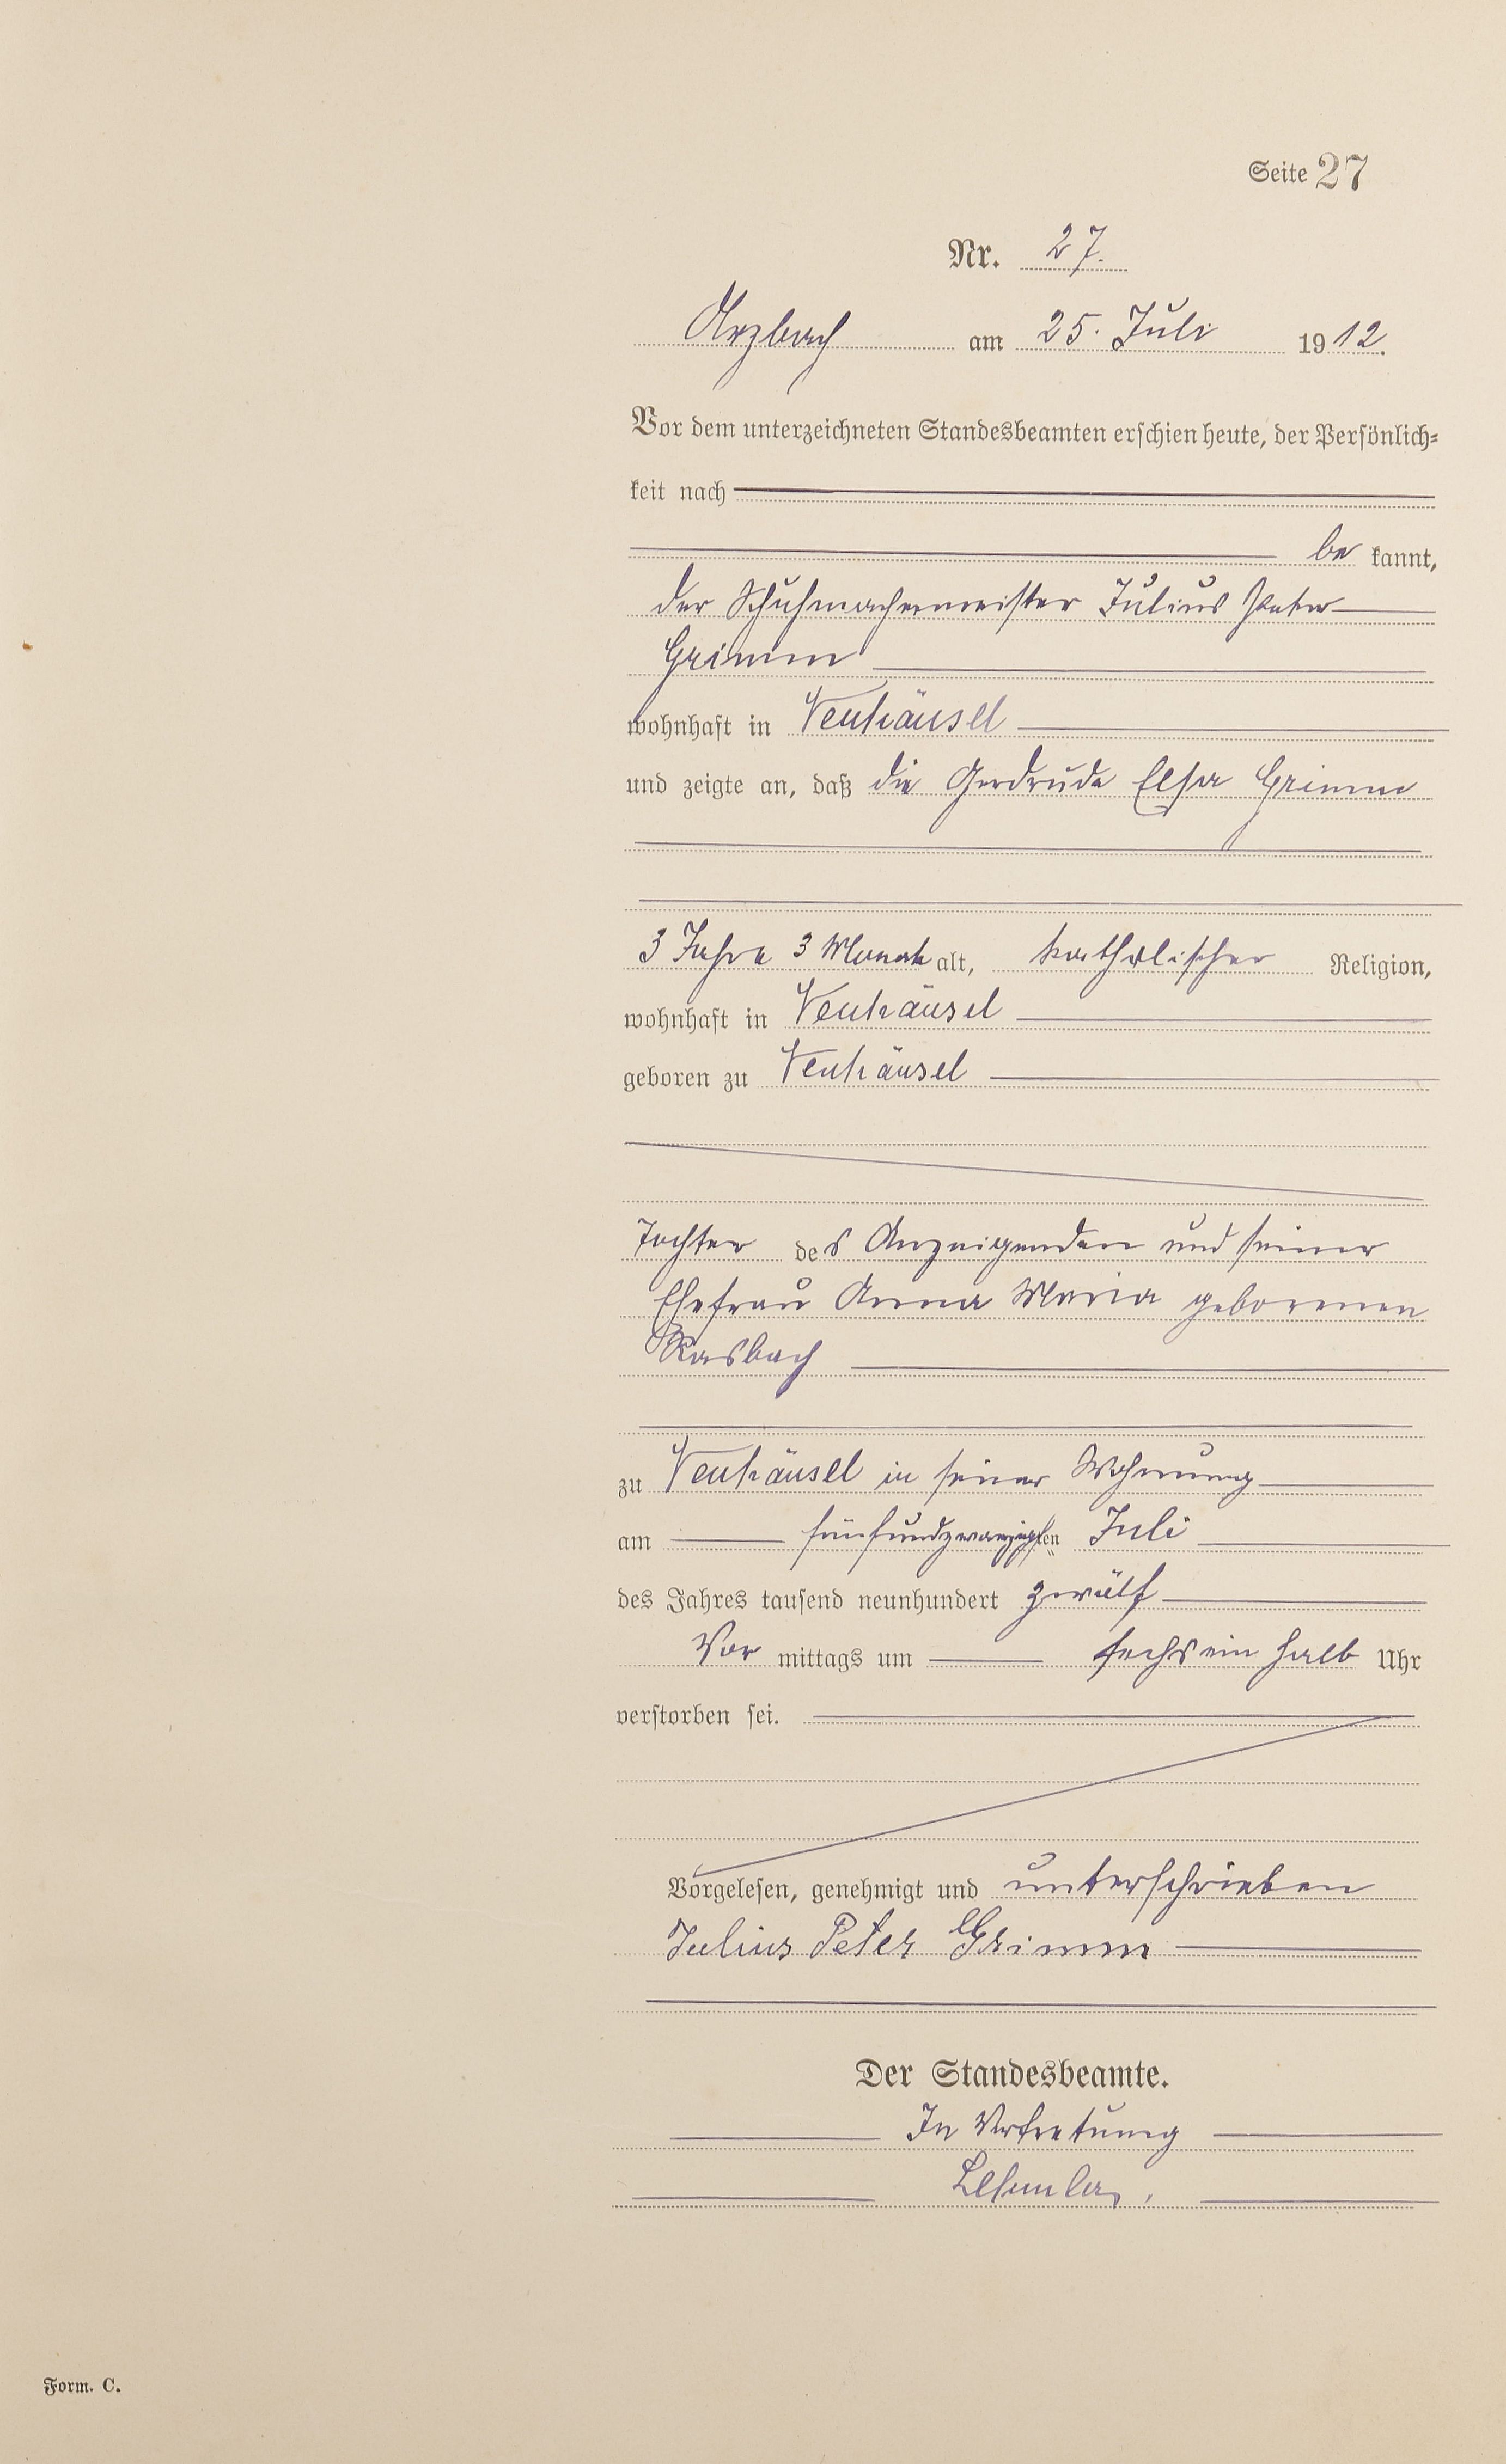 Seite 27
Nr. 27.
Arzbach am 25. Juli 1912.
Vor dem unterzeichneten Standesbeamten erschien heute, der Persönlich-
keit nach
bekannt,
der Schuhmachermeister Julius Peter
Grimm
wohnhaft in Neuhäusel
und zeigte an, daß die Gerdruda Elsa Grimm
3 Jahre 3 Monate alt, katholischer Religion,
wohnhaft in Neuhäusel
geboren zu Neuhäusel
Tochter des Anzeigenden und seiner
Ehefrau Anna Maria geborenen
Rasbach
zu Neuhäusel in seiner Wohnung
am fünfundzwanzigsten Juli
des Jahres tausend neunhundert zwölf
Vormittags um sechs ein halb Uhr
verstorben sei.
Vorgelesen, genehmigt und unterschrieben
Julius Peter Grimm
Der Standesbeamte.
In Vertretung
Form. C.